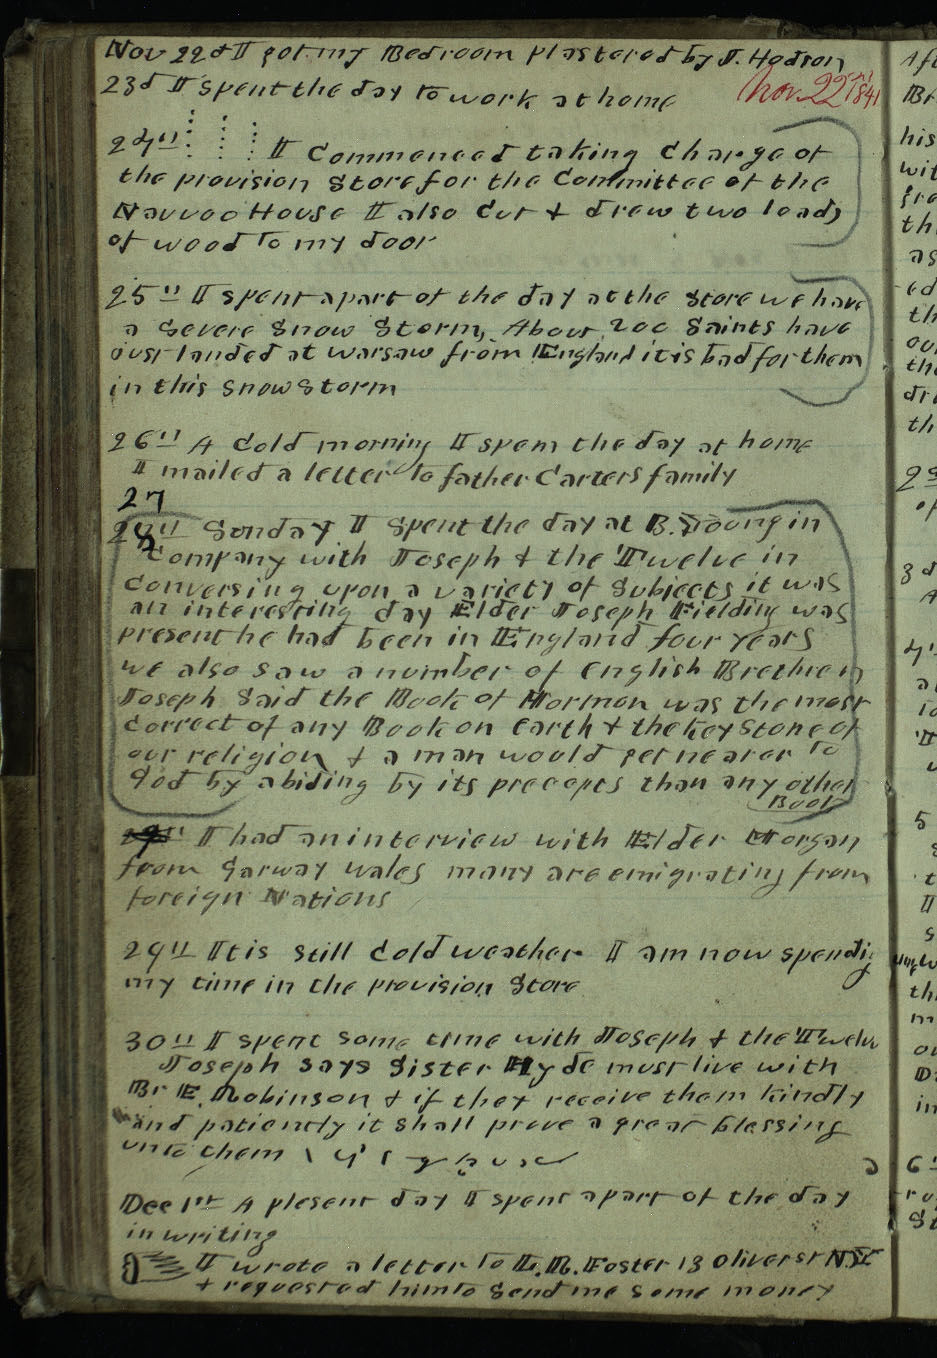 Nov 22d I got my Bedroom plastered by J. Hodson
23d I spent the day to work at home
Nov 22nd 1841
24th I Commenced taking charge of
the provision Store for the Committee of the
Nauvoo House I also Cut & drew two loads
of wood to my door
25th I spent apart of the day at the Store we have
a Severe Snow Storm, About 200 Saints have
just landed at Warsaw from England it is bad for them
in this snow storm
26th A Cold morning I spent the day at home
I mailed a letter to father Carters family
27
28th Sunday I Spent the day at B. Young in
Company with Joseph & the Twelve in
conversing upon a variety of Subjects it was
an interesting day Elder Joseph Fielding was
present he had been in England four years
we also saw a number of english Brethren
Joseph Said the Book of Mormon was the most
correct of any Book on Earth & the key Stone of
our religion & a man would get nearer to
God by abiding by its precepts than any other
Book
I had an interview with Elder Morgan
from Garway wales many are emigrating from
foreign Nations
29th It is still Cold weather I am now spending
my time in the provision Store
30th I spent some time with Joseph & the Twelve
Joseph says Sister Hyde must live with
Br E. Robinson & if they receive them kindly
and patiently it shall prove a great blessing
unto them
Dec 1st A plesent day I spent apart of the day
in writing
I wrote a letter to L. R. Foster 13 Oliver st NY
& requested him to Send me some money